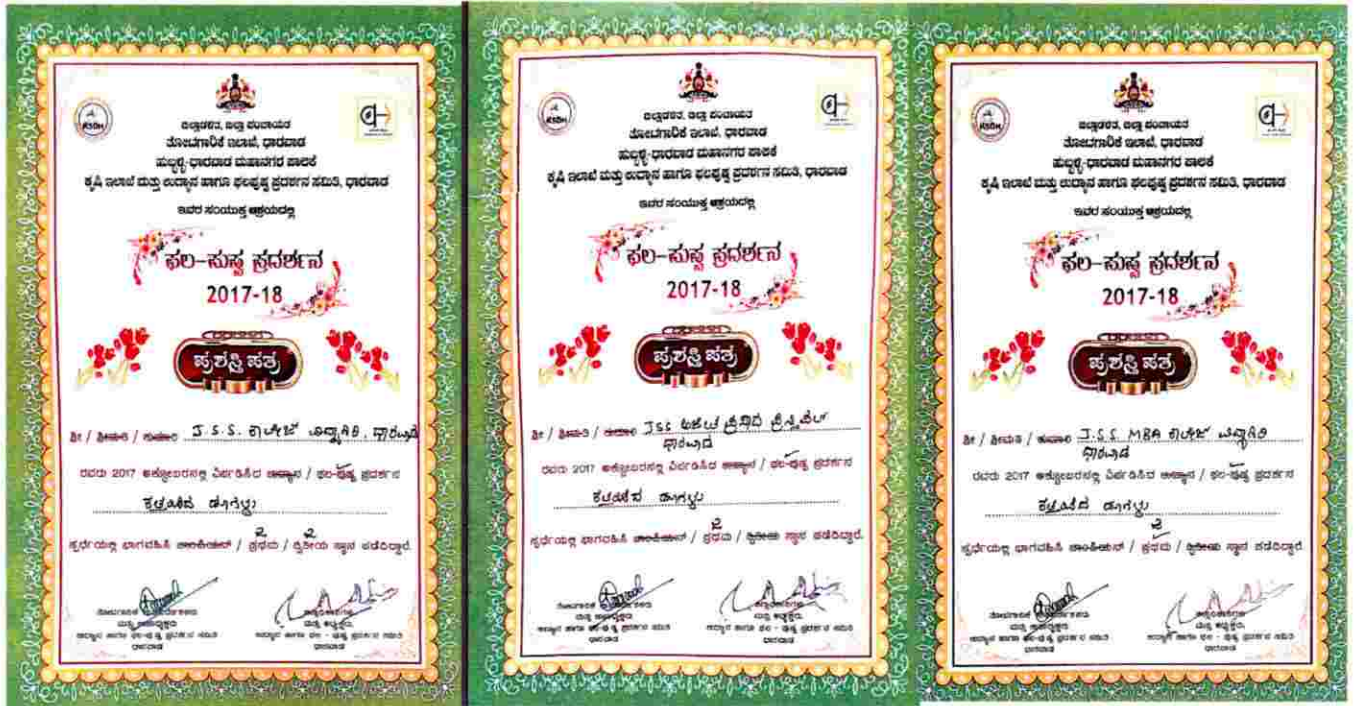 KSDH
ಜಿಲ್ಲಾಡಳಿತ, ಜಿಲ್ಲಾ ಪಂಚಾಯತ
ತೋಟಗಾರಿಕೆ ಇಲಾಖೆ, ಧಾರವಾಡ
ಹುಬ್ಬಳ್ಳಿ-ಧಾರವಾಡ ಮಹಾನಗರ ಪಾಲಿಕೆ
ಕೃಷಿ ಇಲಾಖೆ ಮತ್ತು ಉದ್ಯಾನ ಹಾಗೂ ಫಲಪುಷ್ಪ ಪ್ರದರ್ಶನ ಸಮಿತಿ, ಧಾರವಾಡ
ಇವರ ಸಂಯುಕ್ತ ಆಶ್ರಯದಲ್ಲಿ
ಫಲ-ಪುಷ್ಪ ಪ್ರದರ್ಶನ
2017-18
ಪ್ರಶಸ್ತಿ ಪತ್ರ
ಶ್ರೀ / ಶ್ರೀಮತಿ / ಕುಮಾರಿ J.S.S. ಕಾಲೇಜ್ ವಿದ್ಯಾಗಿರಿ, ಧಾರವಾಡ
ರವರು 2017 ಅಕ್ಟೋಬರನಲ್ಲಿ ಏರ್ಪಡಿಸಿದ ಉದ್ಯಾನ / ಫಲ-ಪುಷ್ಪ ಪ್ರದರ್ಶನ
ಸ್ಪರ್ಧೆಯಲ್ಲಿ ಭಾಗವಹಿಸಿ ಚಾಂಪಿಯನ್ / ಪ್ರಥಮ / ದ್ವಿತೀಯ ಸ್ಥಾನ ಪಡೆದಿದ್ದಾರೆ.
ತೋಟಗಾರಿಕೆ
ಮತ್ತು
ಉದ್ಯಾನ ಹಾಗೂ ಫಲ-ಪುಷ್ಪ ಪ್ರದರ್ಶನ ಸಮಿತಿ
ಧಾರವಾಡ
ಮತ್ತು ಅಧ್ಯಕ್ಷರು,
ಉದ್ಯಾನ ಹಾಗೂ ಫಲ - ಪುಷ್ಪ ಪ್ರದರ್ಶನ ಸಮಿತಿ
ಧಾರವಾಡ
KSDH
ಜಿಲ್ಲಾಡಳಿತ, ಜಿಲ್ಲಾ ಪಂಚಾಯತ
ತೋಟಗಾರಿಕೆ ಇಲಾಖೆ, ಧಾರವಾಡ
ಹುಬ್ಬಳ್ಳಿ-ಧಾರವಾಡ ಮಹಾನಗರ ಪಾಲಿಕೆ
ಕೃಷಿ ಇಲಾಖೆ ಮತ್ತು ಉದ್ಯಾನ ಹಾಗೂ ಫಲಪುಷ್ಪ ಪ್ರದರ್ಶನ ಸಮಿತಿ, ಧಾರವಾಡ
ಇವರ ಸಂಯುಕ್ತ ಆಶ್ರಯದಲ್ಲಿ
ಫಲ-ಪುಷ್ಪ ಪ್ರದರ್ಶನ
2017-18
ಪ್ರಶಸ್ತಿ ಪತ್ರ
ಶ್ರೀ / ಶ್ರೀಮತಿ / ಕುಮಾರಿ JSS
ಧಾರವಾಡ
ರವರು 2017 ಅಕ್ಟೋಬರನಲ್ಲಿ ಏರ್ಪಡಿಸಿದ ಉದ್ಯಾನ / ಫಲ-ಪುಷ್ಪ ಪ್ರದರ್ಶನ
ಸ್ಪರ್ಧೆಯಲ್ಲಿ ಭಾಗವಹಿಸಿ ಚಾಂಪಿಯನ್ / ಪ್ರಥಮ / ದ್ವಿತೀಯ ಸ್ಥಾನ ಪಡೆದಿದ್ದಾರೆ.
ತೋಟಗಾರಿಕೆ
ಮತ್ತು
ಉದ್ಯಾನ ಹಾಗೂ ಫಲ-ಪುಷ್ಪ ಪ್ರದರ್ಶನ ಸಮಿತಿ
ಧಾರವಾಡ
ಮತ್ತು ಅಧ್ಯಕ್ಷರು,
ಉದ್ಯಾನ ಹಾಗೂ ಫಲ - ಪುಷ್ಪ ಪ್ರದರ್ಶನ ಸಮಿತಿ
ಧಾರವಾಡ
KSDH
ಜಿಲ್ಲಾಡಳಿತ, ಜಿಲ್ಲಾ ಪಂಚಾಯತ
ತೋಟಗಾರಿಕೆ ಇಲಾಖೆ, ಧಾರವಾಡ
ಹುಬ್ಬಳ್ಳಿ-ಧಾರವಾಡ ಮಹಾನಗರ ಪಾಲಿಕೆ
ಕೃಷಿ ಇಲಾಖೆ ಮತ್ತು ಉದ್ಯಾನ ಹಾಗೂ ಫಲಪುಷ್ಪ ಪ್ರದರ್ಶನ ಸಮಿತಿ, ಧಾರವಾಡ
ಇವರ ಸಂಯುಕ್ತ ಆಶ್ರಯದಲ್ಲಿ
ಫಲ-ಪುಷ್ಪ ಪ್ರದರ್ಶನ
2017-18
ಪ್ರಶಸ್ತಿ ಪತ್ರ
ಶ್ರೀ / ಶ್ರೀಮತಿ / ಕುಮಾರಿ J.S.S MBA ಕಾಲೇಜ್ ವಿದ್ಯಾಗಿರಿ
ಧಾರವಾಡ
ರವರು 2017 ಅಕ್ಟೋಬರನಲ್ಲಿ ಏರ್ಪಡಿಸಿದ ಉದ್ಯಾನ / ಫಲ-ಪುಷ್ಪ ಪ್ರದರ್ಶನ
ಸ್ಪರ್ಧೆಯಲ್ಲಿ ಭಾಗವಹಿಸಿ ಚಾಂಪಿಯನ್ / ಪ್ರಥಮ / ದ್ವಿತೀಯ ಸ್ಥಾನ ಪಡೆದಿದ್ದಾರೆ.
ತೋಟಗಾರಿಕೆ
ಮತ್ತು
ಉದ್ಯಾನ ಹಾಗೂ ಫಲ-ಪುಷ್ಪ ಪ್ರದರ್ಶನ ಸಮಿತಿ
ಧಾರವಾಡ
ಮತ್ತು ಅಧ್ಯಕ್ಷರು,
ಉದ್ಯಾನ ಹಾಗೂ ಫಲ - ಪುಷ್ಪ ಪ್ರದರ್ಶನ ಸಮಿತಿ
ಧಾರವಾಡ